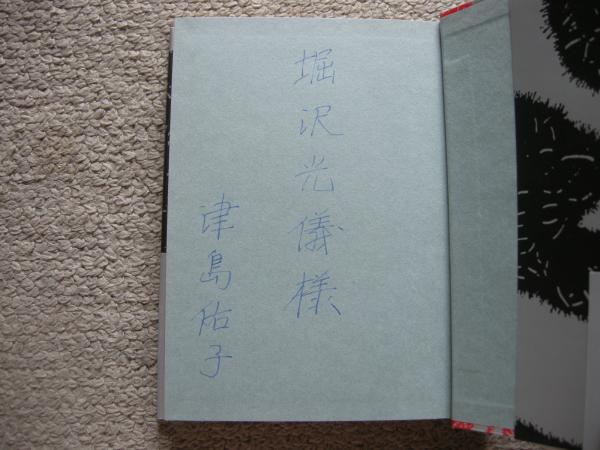 堀沢光儀様
津島佑子